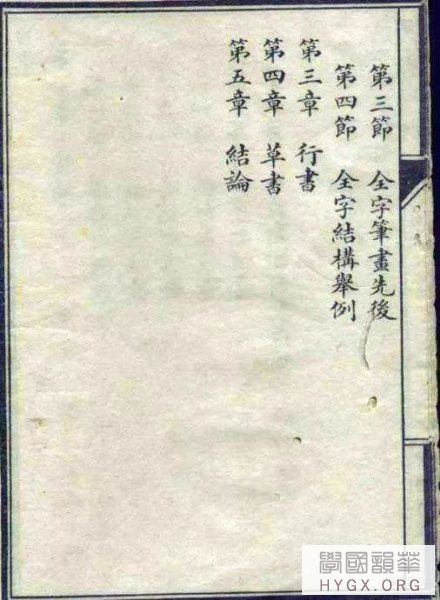 第三節 全字筆畫先後
第四節 全字結構舉例
第三章 行書
第四章 草書
第五章 結論
學國韻華
HYGX.ORG